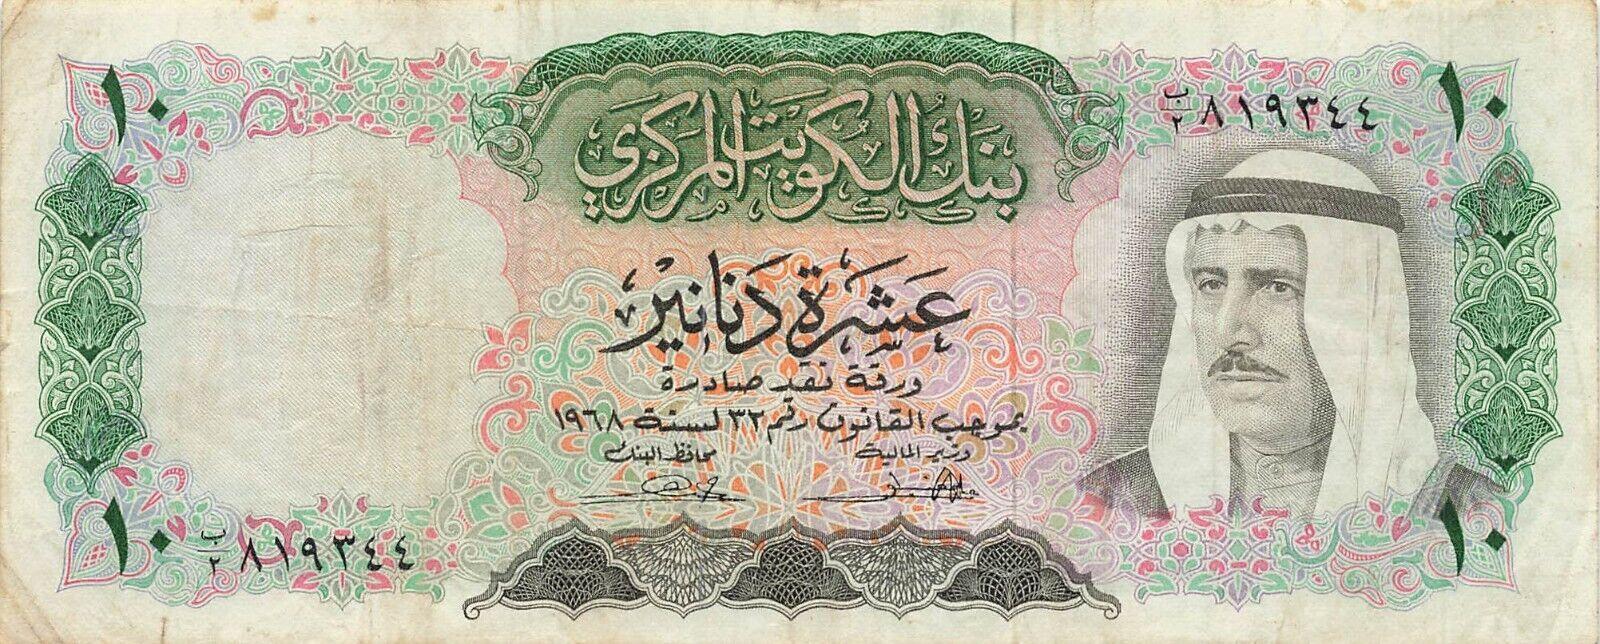 ١٠
١٠
ب/٢ ٨١٩٣٤٤
بنك الكويت المركزي
عشرة دنانير
ورقة نقد صادرة
بموجب القانون رقم ٣٢ لسنة ١٩٦٨
وزير المالية
محافظ البنك
ب/٢ ٨١٩٣٤٤
١٠
١٠